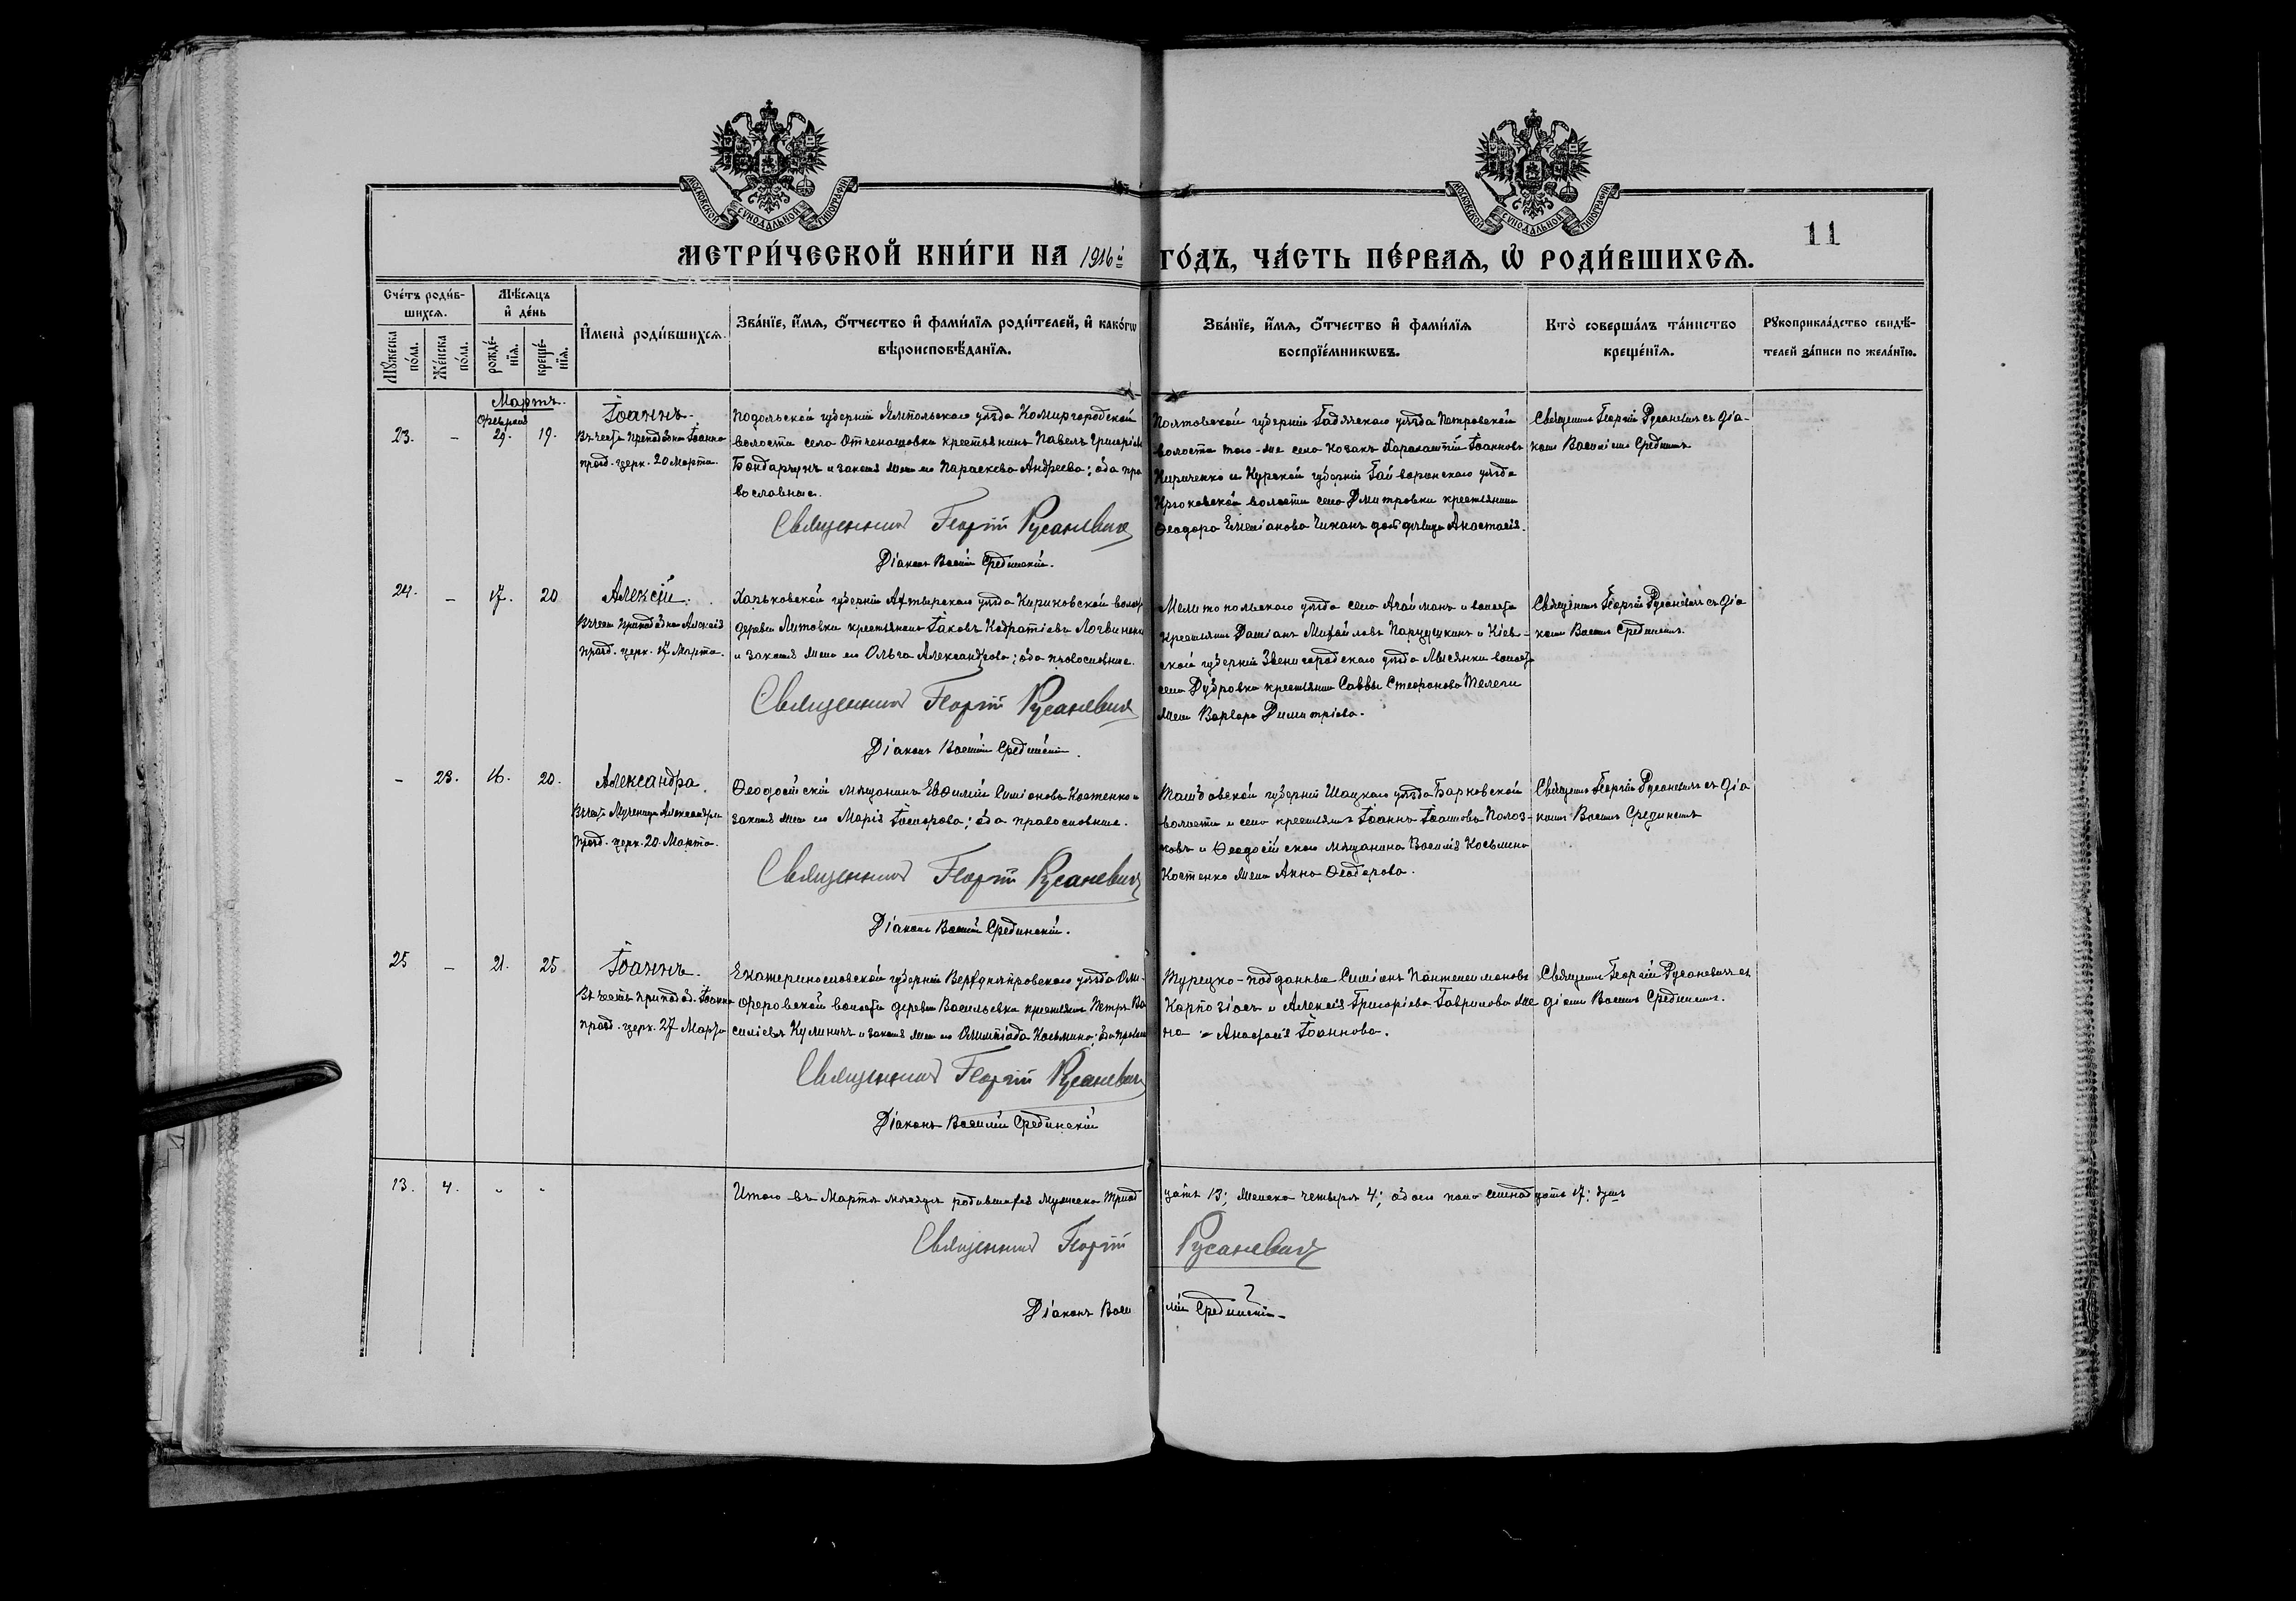 МОСКОВСКОЙ СѴНОДАЛЬНОЙ ТИПОГРАФІИ
МОСКОВСКОЙ СѴНОДАЛЬНОЙ ТИПОГРАФІИ
11
МЕТРИ́ЧЕСКОЙ КНИ́ГИ НА 1916й ГО́ДЪ, ЧА́СТЬ ПЕ́РВАѦ, Ѡ҆ РОДИ́ВШИХСѦ.
Сче́тъ роди́в-
шихсѧ.
Мѣ́сѧцъ
и҆ де́нь
Мꙋ́жеска
по́ла.
Же́нска
по́ла.
рожде́-
нїѧ.
креще́-
нїѧ.
И҆мена̀ роди́вшихсѧ.
Зва́нїе, и҆́мѧ, ѻ҆́тчество и҆ фамѝлїѧ роди́телей, и҆ како́гѡ
вѣроисповѣ́данїѧ.
Зва́нїе, и҆́мѧ, ѻ҆́тчество и҆ фамѝлїѧ
воспрїе́мникѡвъ.
Кто̀ соверша́лъ та́инство
креще́нїѧ.
Рꙋкоприкла́дство свидѣ́-
телей за́писи по жела́нїю.
Мартъ.
23.
-
Февраля
29.
19.
Іоаннъ.
Въ честь Преподобна Іоанна
празд. церк. 20 Марта.
Подольской губерніи Ямпольскаго уѣзда Комиргородской
волости села Отченашовки крестьянинъ Павелъ Григорьевъ
Бондарчукъ и законная жена его Параскева Андреева; оба пра
вославные.
Священникъ Георгій Русаневичъ
Діаконъ Василій Срединскій.
Полтавской губерніи Гадячскаго уѣзда Петровской
волости того-же села козакъ Іоанновъ
Кириченко и Курской губерніи Грайворонскаго уѣзда
Крюковской волости села Дмитровки крестьянина
Ѳеодора Емеліанова Чиканъ дочь дѣвица Анастасія.
Священникъ Георгій Русаневичъ съ діа-
кономъ Василіемъ Срединскимъ
24.
-
17.
20
Алексій.
Въ честь Преподобна Алексія
празд. церк. 17 Марта.
Харьковской губерніи Ахтырскаго уѣзда Кириковской волости
деревни Литовки крестьянинъ Іаковъ Кодратіевъ Логвиненко
и законная жена его Ольга Александрова; оба православные.
Священникъ Георгій Русаневичъ
Діаконъ Василій Срединскій.
Мелитопольскаго уѣзда села Агайманъ и волости
крестьянинъ Даміанъ Михайловъ и Кіев-
ской губерніи Звенигородскаго уѣзда Лысянки волости
села Дубровки крестьянина Саввы Стефанова Телеги
жена Варвара Димитріева.
Священникъ Георгій Русаневичъ съ діа
кономъ Василіемъ Срединскимъ.
-
23.
16.
20.
Александра.
Въ честь Мученицы Александры
празд. церк. 20. Марта.
Ѳеодосійскій мѣщанинъ Евѳимій Симіоновъ Костенко и
законная жена его Марія Госиорова; оба православные.
Священникъ Георгій Русаневичъ
Діаконъ Василій Срединскій.
Тамбовской губерніи Шацкаго уѣзда Барковской
волости и села крестьянинъ Іоаннъ Іоанновъ Полоз-
ковъ и Ѳеодосійскаго мѣщанина Василія Косьмина
Костенко жена Анна Ѳеодорова.
Священникъ Георгій Русаневичъ съ діа
кономъ Василіемъ Срединскимъ
25
-
21.
25
Іоаннъ.
Въ честь Преподоб. Іоанна
празд. церк. 27 Марта
Екатеринославской губерніи Верхднѣпровскаго уѣзда Оли-
феровской волости деревни Васильевка крестьянинъ Петръ Ва
силіевъ Кулининъ и законная жена его Олимпіада Косьмина; оба правосл
Священникъ Георгій Русаневичъ
Діаконъ Василій Срединскій
Турецко-подданные Симіонъ Пантелеимоновъ
Карпозіасъ и Алексія Григоріева Гаврилова же
на - Анастасія Іоаннова.
Священникъ Георгій Русаневичъ съ
діакономъ Василіемъ Срединскимъ.
13.
4.
"
"
Итого въ Мартѣ мѣсяцѣ родившихся мужеска тринад цать 13; женска четыре 4; обоего пола семнадцать 17: душъ
Священникъ Георгій Русаневичъ
Діаконъ Васи лій Срединскій